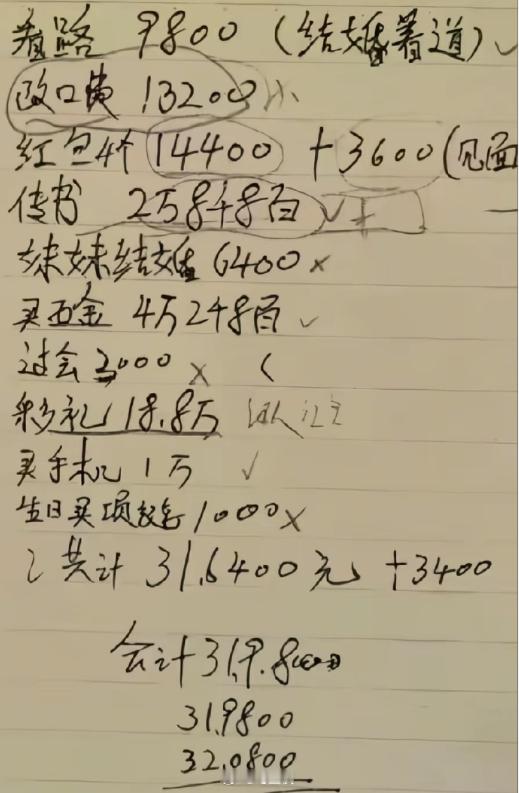 看路 9800 (结婚看道) ✓
改口费 13200
红包4个 14400 + 3600 (见面
传书 25848百 ✓
妹妹结婚 6400 ×
买五金 4万248百 ✓
过会 2000 ×
彩礼 18.8万
买手机 1万 ✓
生日买项链 1000 ×
共计 31.6400元 +3400
合计 31.9.8
31.9800
32.0800